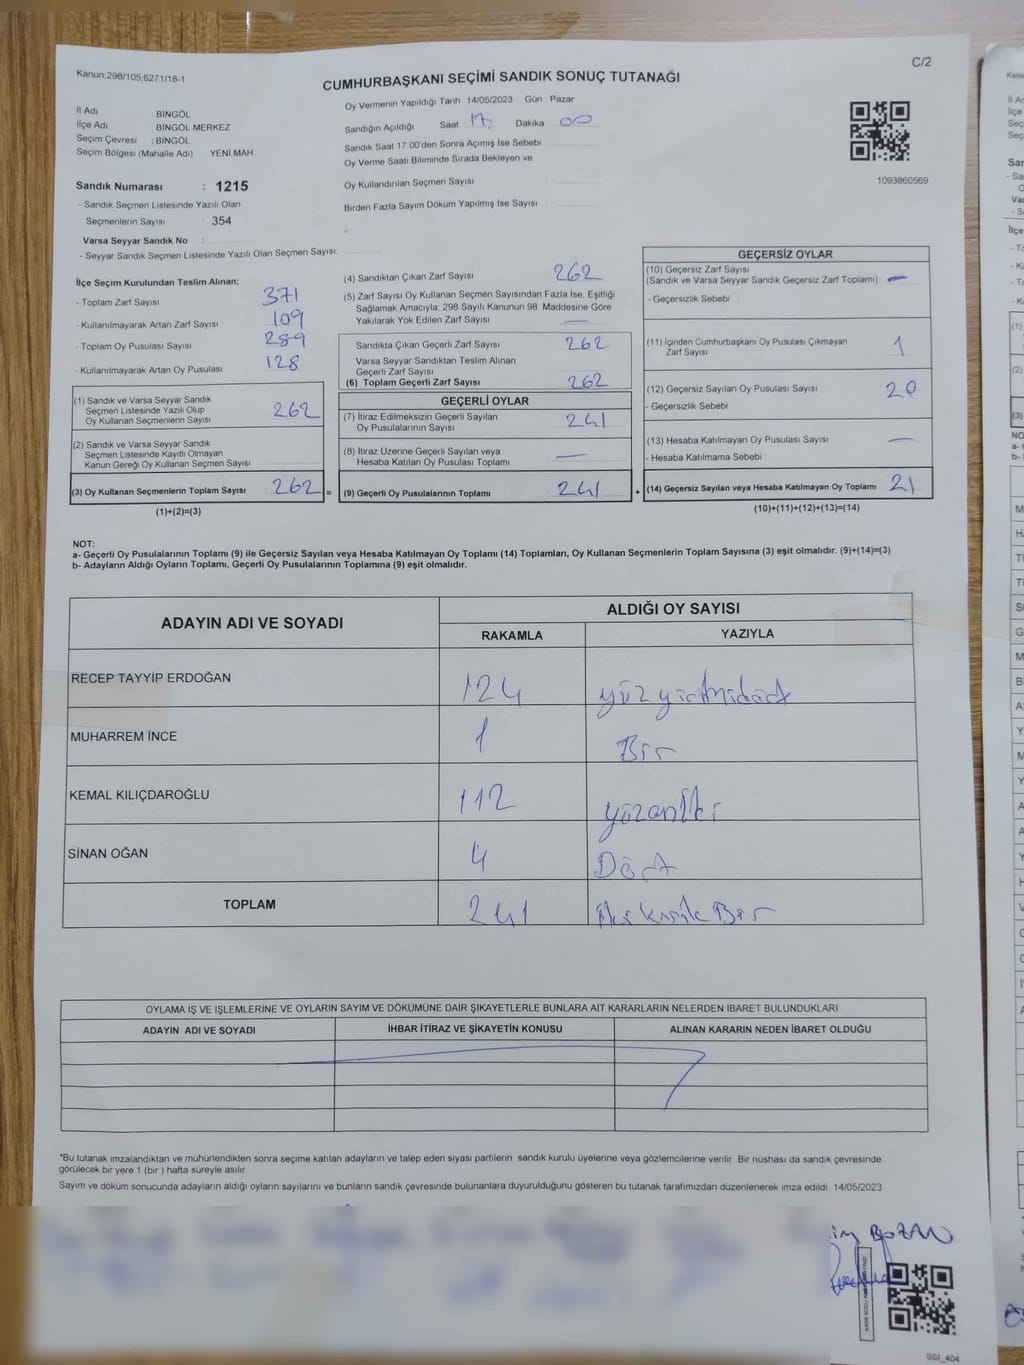 Kanun:298/105;6271/18-1
C/2
CUMHURBAŞKANI SEÇİMİ SANDIK SONUÇ TUTANAĞI
İl Adı BİNGÖL
İlçe Adı BİNGÖL MERKEZ
Seçim Çevresi : BİNGÖL
Seçim Bölgesi (Mahalle Adı) YENİ MAH
Sandık Numarası : 1215
- Sandık Seçmen Listesinde Yazılı Olan
Seçmenlerin Sayısı : 354
Varsa Seyyar Sandık No :
- Seyyar Sandık Seçmen Listesinde Yazılı Olan Seçmen Sayısı:
Oy Vermenin Yapıldığı Tarih 14/05/2023 Gün : Pazar
Sandığın Açıldığı Saat 17 Dakika 00
Sandık Saat 17:00'den Sonra Açımış İse Sebebi
Oy Verme Saati Bitiminde Sırada Bekleyen ve
Oy Kullandırılan Seçmen Sayısı
Birden Fazla Sayım Döküm Yapılmış İse Sayısı
1093860569
İlçe Seçim Kurulundan Teslim Alınan;
- Toplam Zarf Sayısı 371
- Kullanılmayarak Artan Zarf Sayısı 109
- Toplam Oy Pusulası Sayısı 289
- Kullanılmayarak Artan Oy Pusulası 128
(1) Sandık ve Varsa Seyyar Sandık
Seçmen Listesinde Yazılı Olup
Oy Kullanan Seçmenlerin Sayısı 262
(2) Sandık ve Varsa Seyyar Sandık
Seçmen Listesinde Kayıtlı Olmayan
Kanun Gereği Oy Kullanan Seçmen Sayısı
(3) Oy Kullanan Seçmenlerin Toplam Sayısı 262 =
(1)+(2)=(3)
(4) Sandıktan Çıkan Zarf Sayısı 262
(5) Zarf Sayısı Oy Kullanan Seçmen Sayısından Fazla İse, Eşitliği
Sağlamak Amacıyla, 298 Sayılı Kanunun 98. Maddesine Göre
Yakılarak Yok Edilen Zarf Sayısı —
Sandıkta Çıkan Geçerli Zarf Sayısı 262
Varsa Seyyar Sandıktan Teslim Alınan
Geçerli Zarf Sayısı
(6) Toplam Geçerli Zarf Sayısı 262
GEÇERLİ OYLAR
(7) İtiraz Edilmeksizin Geçerli Sayılan
Oy Pusulalarının Sayısı 241
(8) İtiraz Üzerine Geçerli Sayılan veya
Hesaba Katılan Oy Pusulası Toplamı —
(9) Geçerli Oy Pusulalarının Toplamı 241 +
GEÇERSİZ OYLAR
(10) Geçersiz Zarf Sayısı
(Sandık ve Varsa Seyyar Sandık Geçersiz Zarf Toplamı) —
- Geçersizlik Sebebi
(11) İçinden Cumhurbaşkanı Oy Pusulası Çıkmayan
Zarf Sayısı 1
(12) Geçersiz Sayılan Oy Pusulası Sayısı 20
- Geçersizlik Sebebi
(13) Hesaba Katılmayan Oy Pusulası Sayısı —
- Hesaba Katılmama Sebebi
(14) Geçersiz Sayılan veya Hesaba Katılmayan Oy Toplamı 21
(10)+(11)+(12)+(13)=(14)
NOT:
a- Geçerli Oy Pusulalarının Toplamı (9) ile Geçersiz Sayılan veya Hesaba Katılmayan Oy Toplamı (14) Toplamları, Oy Kullanan Seçmenlerin Toplam Sayısına (3) eşit olmalıdır. (9)+(14)=(3)
b- Adayların Aldığı Oyların Toplamı, Geçerli Oy Pusulalarının Toplamına (9) eşit olmalıdır.
ADAYIN ADI VE SOYADI ALDIĞI OY SAYISI
RAKAMLA YAZIYLA
RECEP TAYYİP ERDOĞAN 124 yüz yirmidört
MUHARREM İNCE 1 Bir
KEMAL KILIÇDAROĞLU 112 yüzoniki
SİNAN OĞAN 4 Dört
TOPLAM 241
OYLAMA İŞ VE İŞLEMLERİNE VE OYLARIN SAYIM VE DÖKÜMÜNE DAİR ŞİKAYETLERLE BUNLARA AİT KARARLARIN NELERDEN İBARET BULUNDUKLARI
ADAYIN ADI VE SOYADI İHBAR İTİRAZ VE ŞİKAYETİN KONUSU ALINAN KARARIN NEDEN İBARET OLDUĞU
*Bu tutanak imzalandıktan ve mühürlendikten sonra seçime katılan adayların ve talep eden siyasi partilerin sandık kurulu üyelerine veya gözlemcilerine verilir. Bir nüshası da sandık çevresinde
görülecek bir yere 1 (bir) hafta süreyle asılır.
Sayım ve döküm sonucunda adayların aldığı oyların sayılarını ve bunların sandık çevresinde bulunanlara duyurulduğunu gösteren bu tutanak tarafımızdan düzenlenerek imza edildi. 14/05/2023
BOZAN
SSI_404